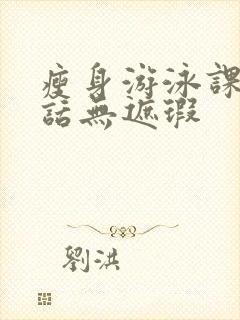 瘦身游泳課
話無遮瑕
劉洪